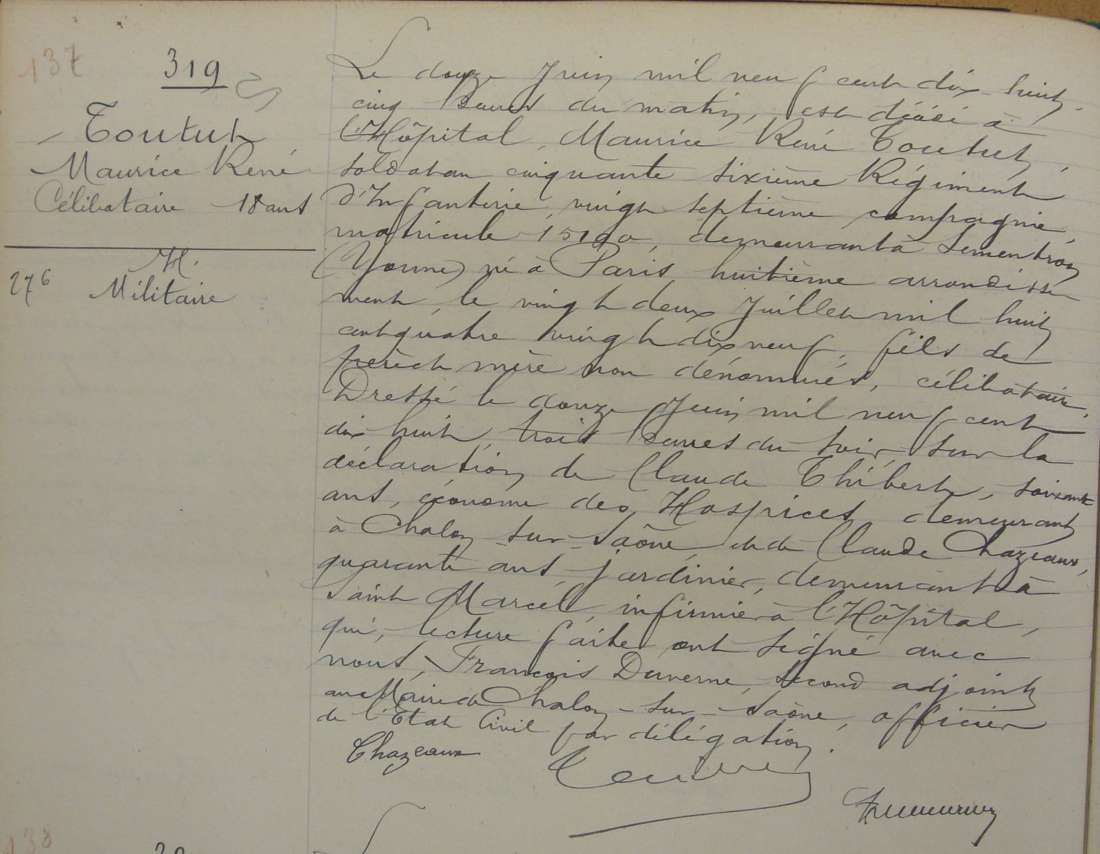 137
319
Toutut
Maurice René
Célibataire 18 ans
H.
276
Militaire
Le douze Juin mil neuf cent dix huit,
cinq heures du matin, est décédé à
l'Hôpital, Maurice René Toutut,
soldat au cinquante sixième Régiment
d'Infanterie, vingt septième compagnie,
matricule 15190, demeurant à Sementron
(Yonne) né à Paris huitième arrondisse
ment, le vingt deux Juillet mil huit
cent quatre vingt dix neuf, fils de
père et mère non dénommés, célibataire.
Dressé le douze Juin mil neuf cent
dix huit, trois heures du soir sur la
déclaration de Claude Thibert, soixante
ans, économe des Hospices, demeurant
à Chalon-sur-Saône, et de Claude Chazeaux,
quarante ans jardinier, demeurant à
Saint Marcel, infirmier à l'Hôpital,
qui, lecture faite ont signé avec
nous, François Duverne, second adjoint
au Maire de Chalon-sur-Saône, officier
de l'Etat Civil par délégation.
Chazeaux
138